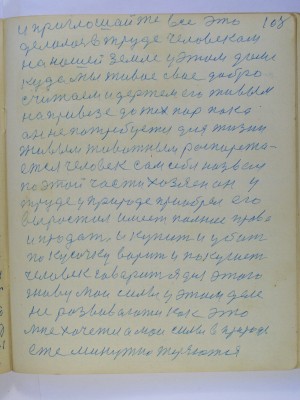 и приглошайте все это 108
делалось в труде человекам
на нашей земле у этом доми
куде мы живое свае добро
считаем и держем его живьем
на привезе до тех пор пока
он не потребуется для жизни
живьем животным роспоряжа-
ется человек сам себя назвал
по этой части хозяенан у
труде у природе приобрел его
выростил имеет полное право
и продат и купит и убит
по кусочку варит и покушает
человек соварит я для этого
живу мои силы у этом деле
не розвивалати как это
мне хочется а мои силы в природе
еже минутно теряются